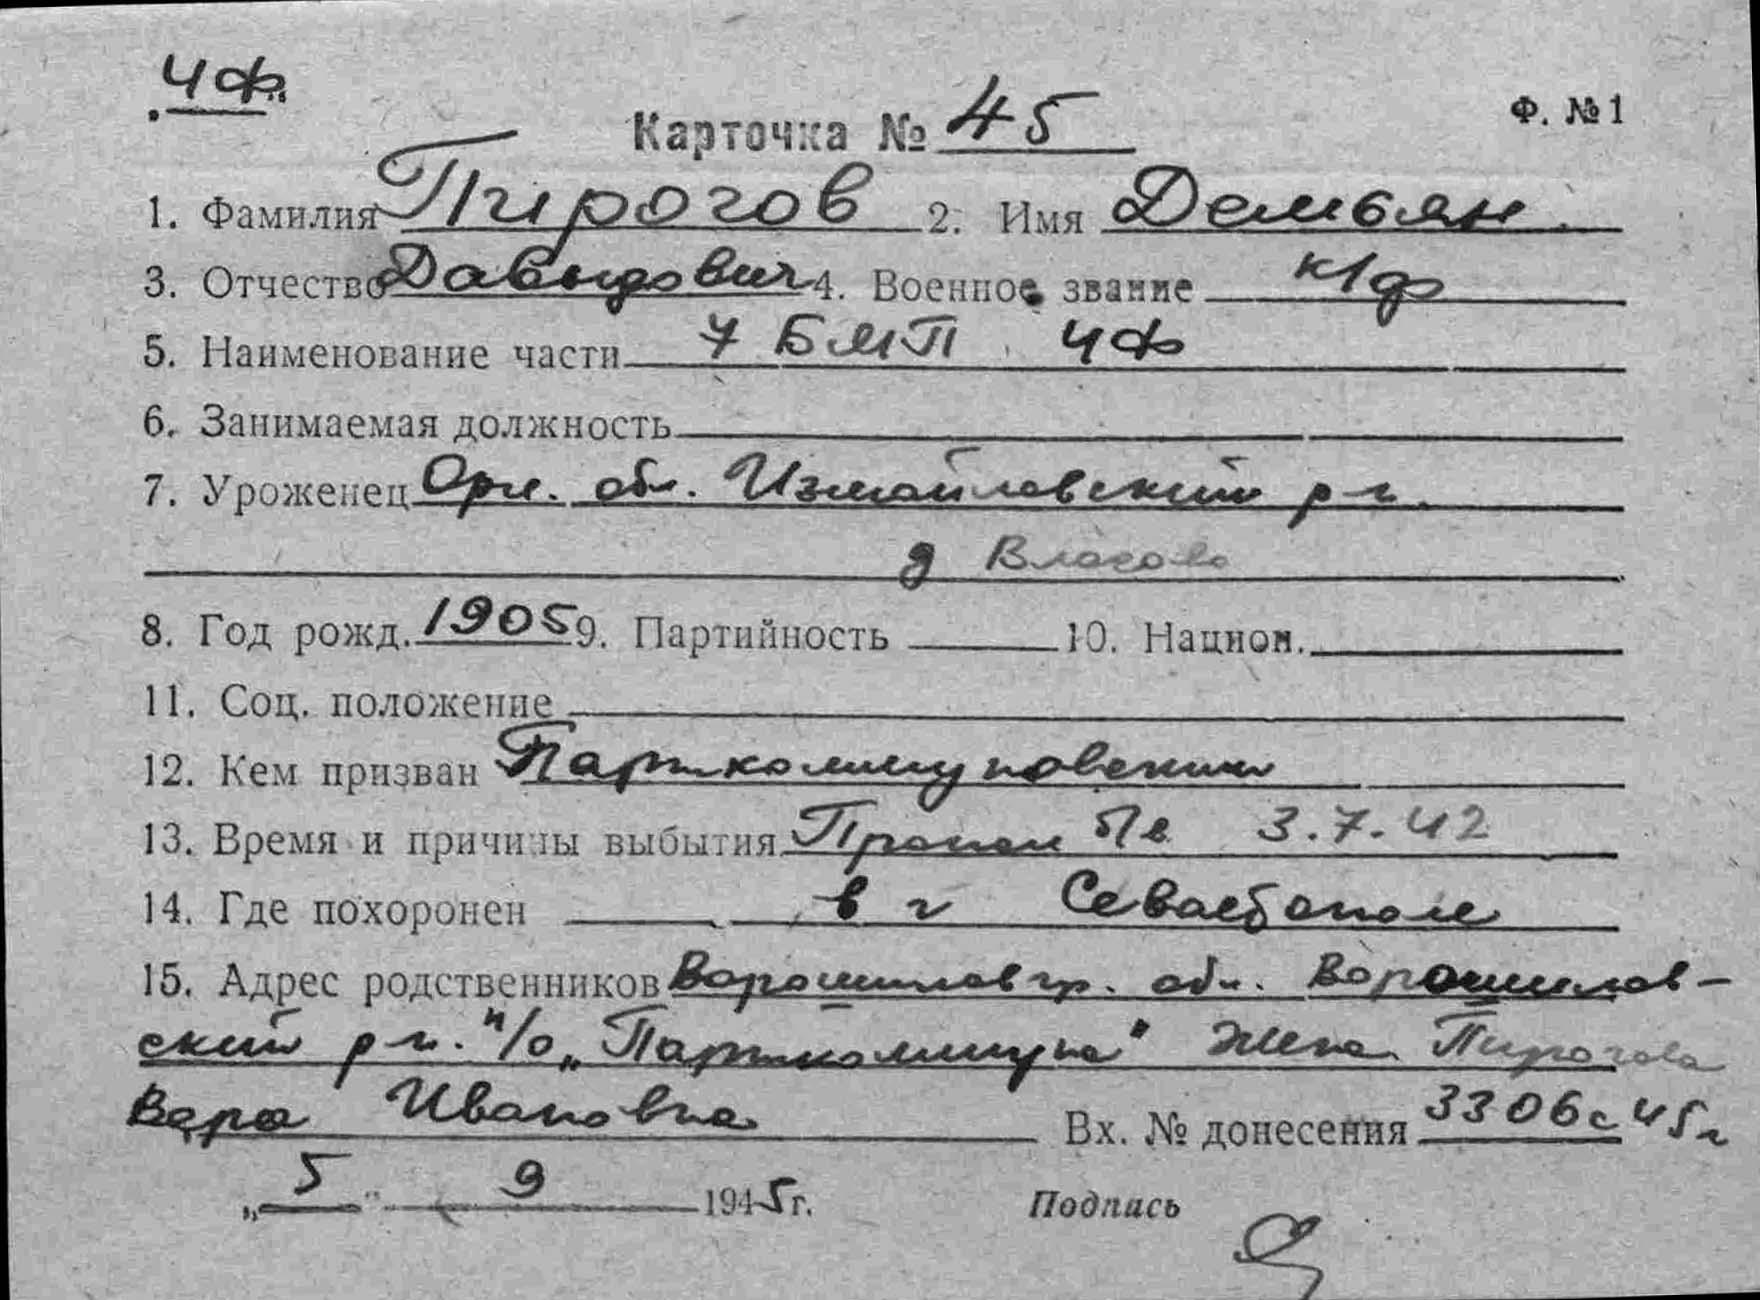 ЧФ.
Карточка № 45
Ф. № 1
1. Фамилия Пирогов 2. Имя Демьян
3. Отчество Давыдович 4. Военное звание к/ф
5. Наименование части 7 БМП ЧФ
6. Занимаемая должность
7. Уроженец Орл. обл. Измайловский р-н.
д Влагово
8. Год рожд. 1905 9. Партийность 10. Национ.
11. Соц. положение
12. Кем призван Парткоммуновским
13. Время и причины выбытия Пропал 3.7.42
14. Где похоронен в г Севастополе
15. Адрес родственников Ворошиловгр. обл. Ворошилов-
ский р-н. п/о „Парткоммуна" Жена Пирогова
Вера Ивановна Вх. № донесения 3306с 45г
„5" 9 1945г. Подпись